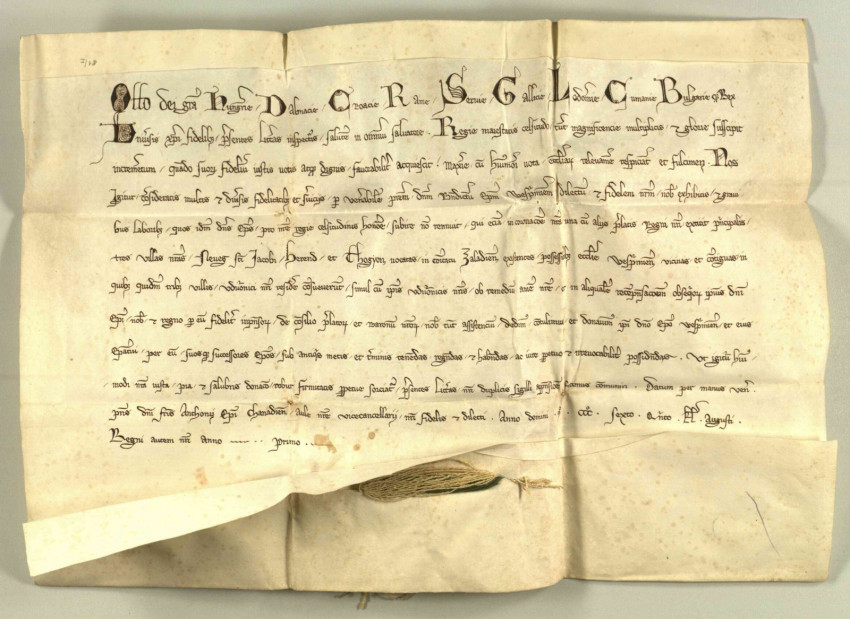 Otto dei gra Hungrie Dalmacie Croacie Rame Servie Gallicie Lodomie Cumanie Bulgarie q Rex
Univsis xpi fidelibz psentes litteras inspecturis salute in omnium salvatore. Regie maiestatis celsitudo tunc magnificencius multiplicatur et glorie suscipit
incrementum, quando suorum fidelium iustis votis favorabiliter acquiescit maxime cum vota ecclesiarum relevamen respiciant et fulcimen. Nos
igitur consideratis multis et diversis fidelitatibz et serviciis per venerabilem prem dnm epm dilectum et fidelem nrm nob exhibitis et gravi
bus laboribz quos idem dns eps pro nre regie celsitudinis honore subire non rennuit qui eciam in coronacione nra una cum aliis prelatis Regni nri extitit principalis
tres villas nras Neueg sci Jacobi Herend et vocatas in comitatu Zaladiensi existentes possessionibz ecclesie Wespmien vicinas et contiguas in
quibz quidem tribz villis udvornici nri residere consueverunt simul cum ipsis udvornicis nris ob remedium anime nre et in aliqualem recompensacionem obsequiorum ipsius dni
Epi nob et regno per eum fideliter impensorum de consilio prelatorum et baronum nrorum nob tunc assistencium dedimus contulimus et donavimus ipsi dno epo Wesprimien et eius
Epatui per eum suosqz successores epos sub antiquis metis et terminis tenendas regendas et habendas ac iure perpetuo et irrevocabiliter possidendas. Ut igitur huius
modi nra iusta pia et salubris donacio robur firmitatis perpetue sorciatur psentes litteras nri duplicis sigilli fecimus communiri. Datum per manus ven
pris dni fris Anthonii epi Chanadien aule nre vicecancellarii nri fidelis et dilecti. Anno domini . . ccc. sexto. Qnto kl. Augusti.
Regni autem nri anno primo.